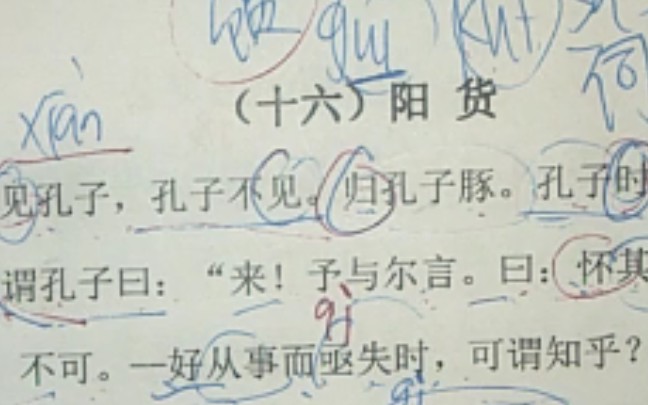 馈 guì kuì
词
（十六）阳 货
xiàn
见孔子，孔子不见。归孔子豚。孔子时
谓孔子曰：“来！予与尔言。曰：怀其
qì
不可。—好从事而亟失时，可谓知乎？
qì